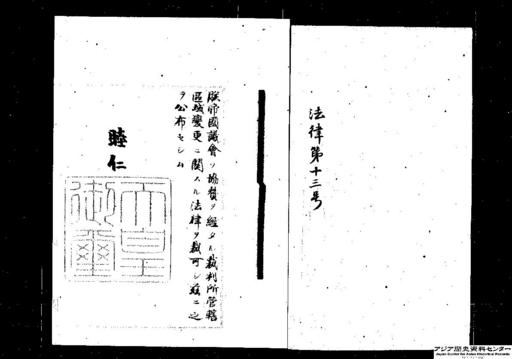 法律第十三号
朕帝國議會ノ協賛ヲ經タル裁判所管轄
區域變更ニ關スル法律ヲ裁可シ茲ニ之
ヲ公布セシム
睦仁
天皇
御璽
アジア歴史資料センター
Japan Center for Asian Historical Records